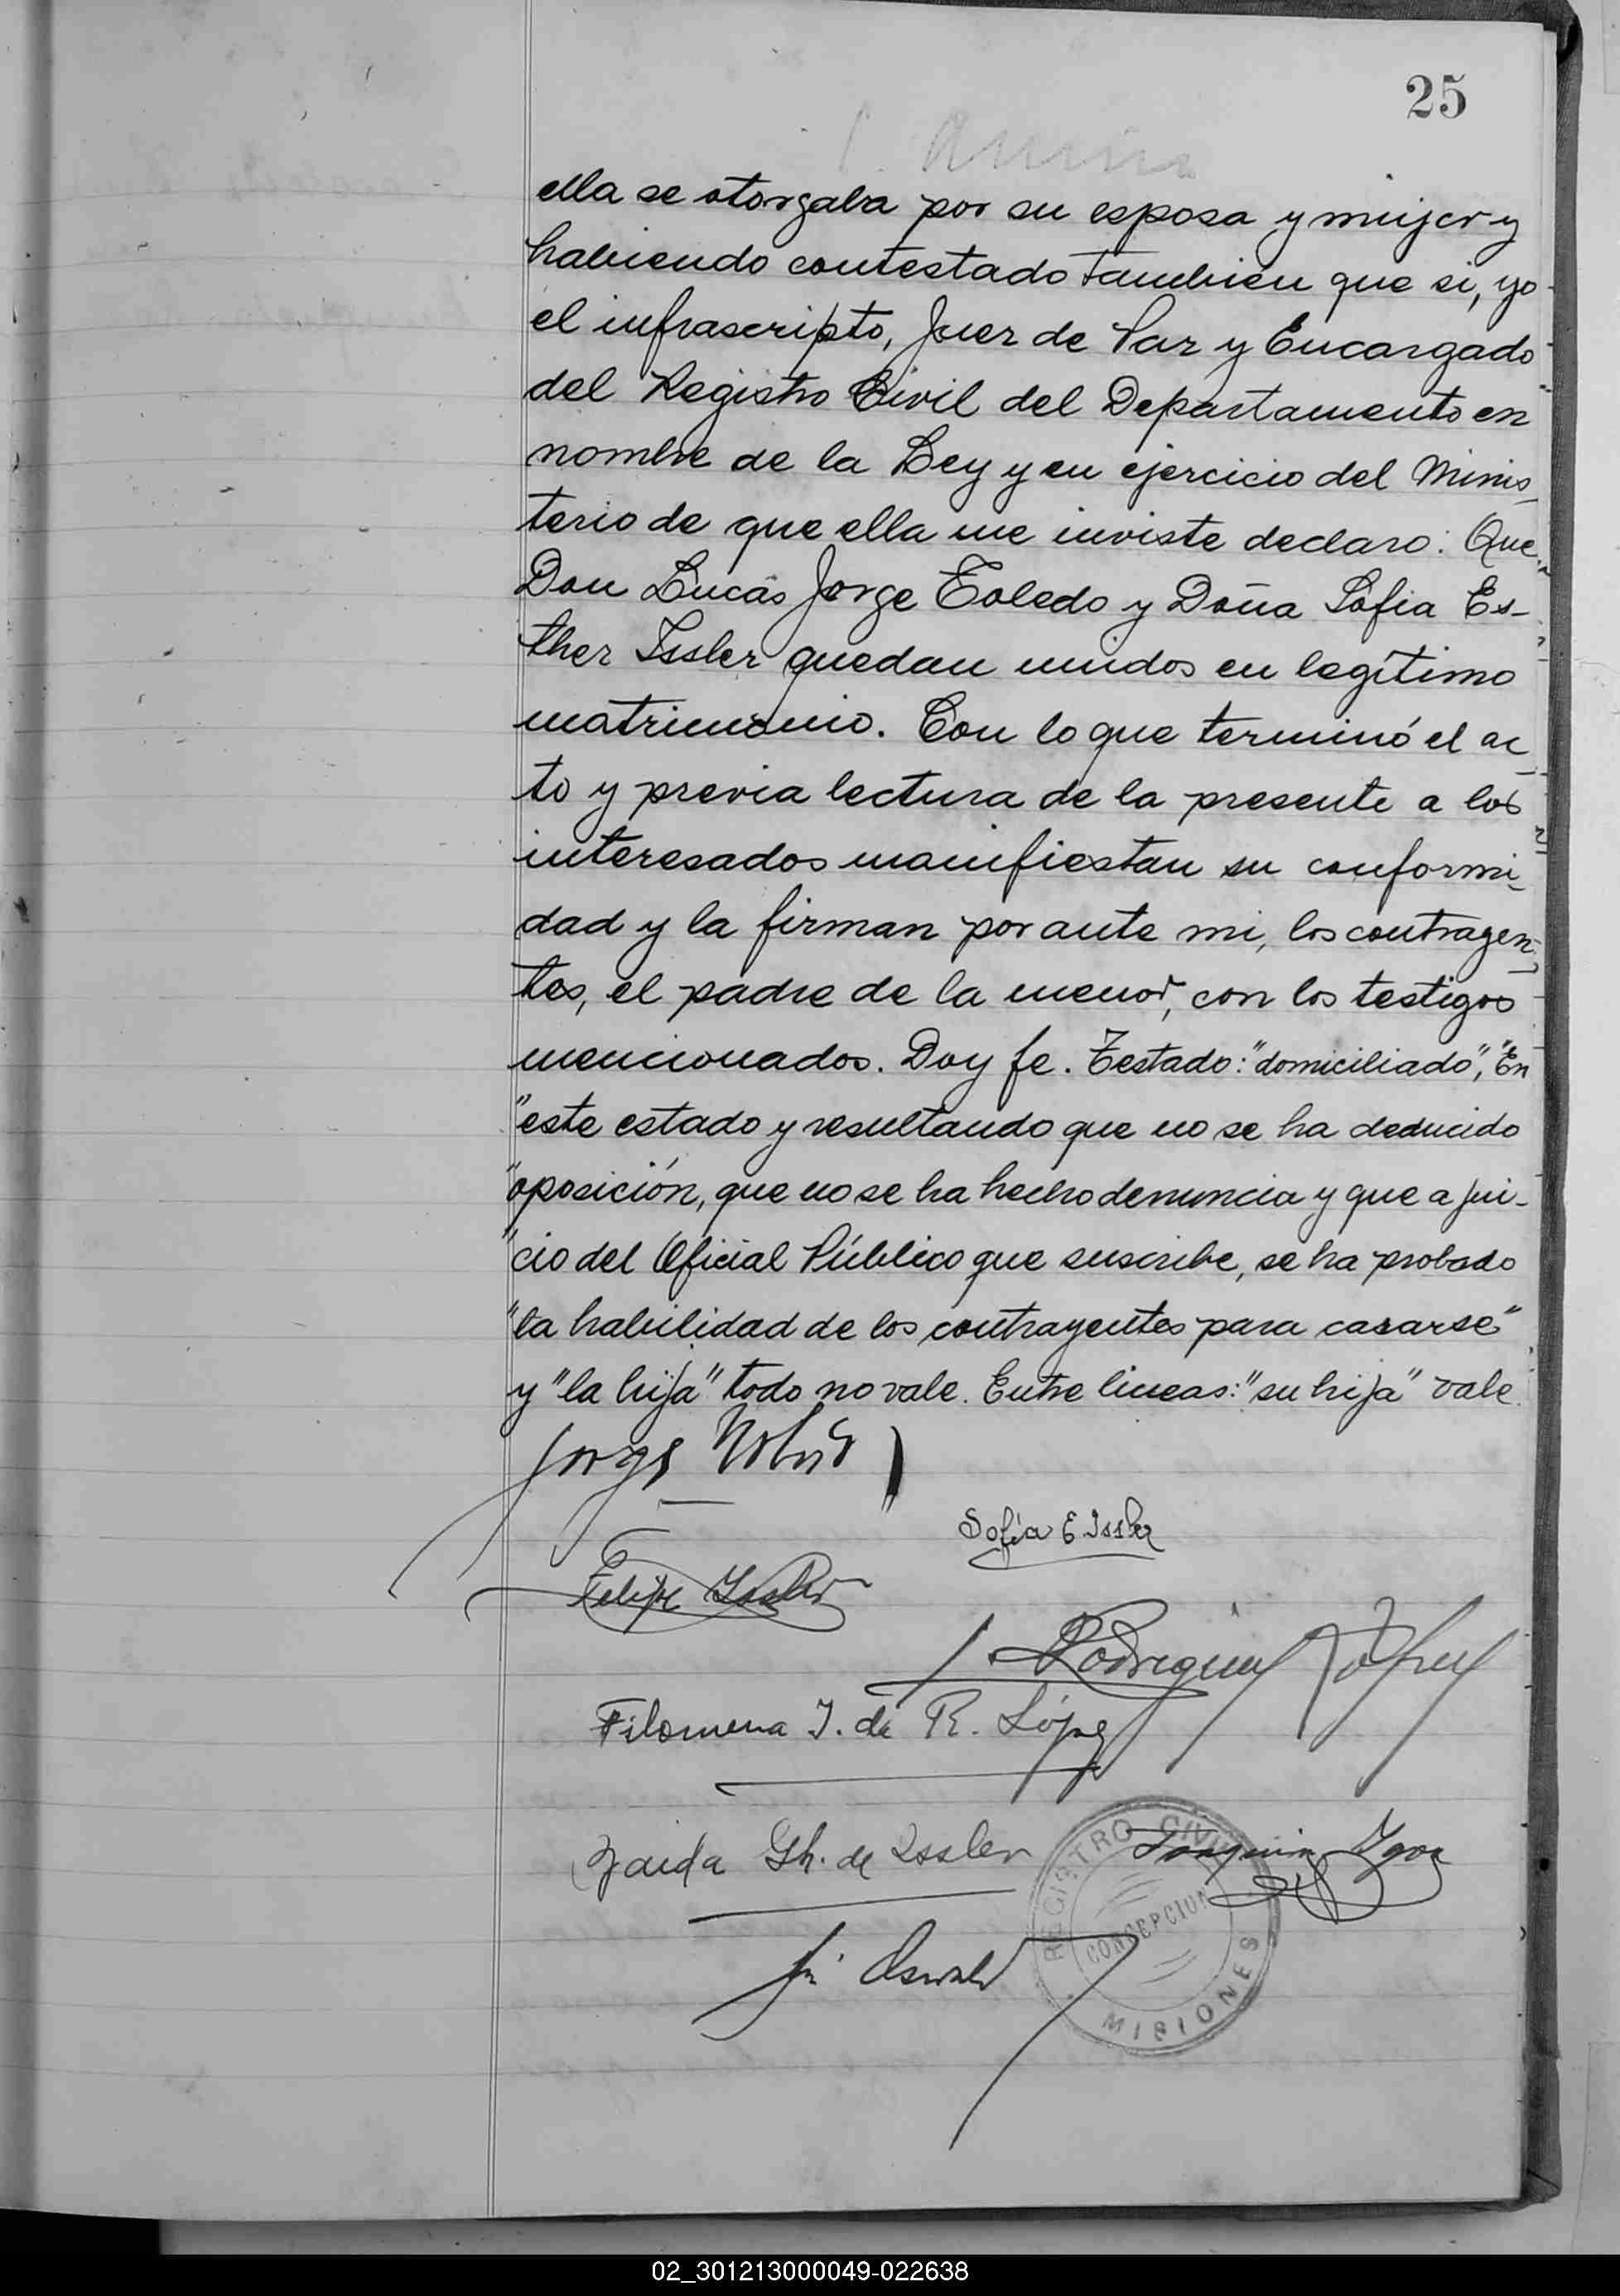 25
ella se otorgaba por su esposa y mujer y
habiendo contestado tambien que si, yo
el infrascripto, Juez de Paz y Encargado
del Registro Civil del Departamento en
nombre de la Ley y en ejercicio del Minis
terio de que ella me inviste declaro: Que
Don Lucas Jorge Toledo y Doña Sofia Es-
ther Issler quedan unidos en legítimo
matrimonio. Con lo que terminó el ac
to y previa lectura de la presente a los
interesados manifiestan su conformi
dad y la firman por ante mi, los contrayen
tes, el padre de la menor, con los testigos
mencionados. Doy fe. Testado: "domiciliado", "En
"este estado y resultando que no se ha deducido
"oposición, que no se ha hecho denuncia y que a jui-
"cio del Oficial Público que suscribe, se ha probado
"la habilidad de los contrayentes para casarse"
y "la hija" todo no vale. Entre lineas: "su hija" vale.
Jorge
Sofía E Issler
Felipe Issler
Rodriguez López
Filomena I. de R. López
Zaida Gh. de Issler
Joaquin
Oswald
REGISTRO CIVIL
CONCEPCION
MISIONES
02_301213000049-022638